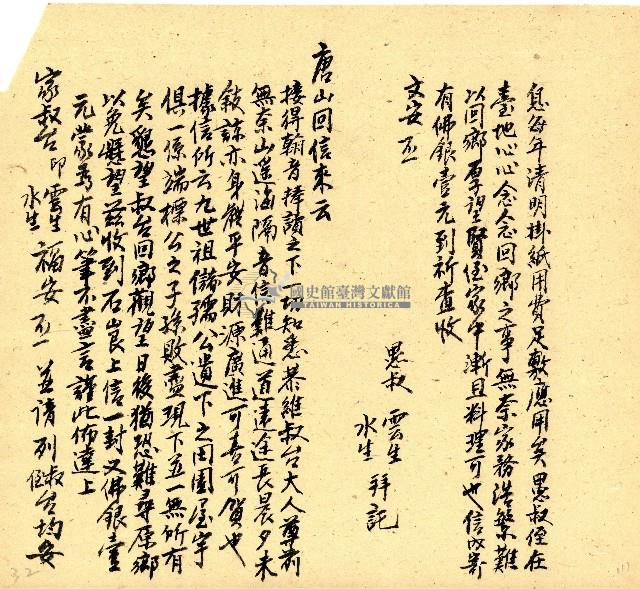 息每年清明掛紙用費足敷應用矣愚叔侄在
臺地心心念念回鄉之事無奈家務浩繁難
以回鄉厚望賢侄家中漸且料理可也信內寄
有佛銀壹元到祈查收
文安 不一
愚叔 雲生 水生 拜託
唐山回信來云
接得翰音捧讀之下 知悉恭維叔台大人尊前
無奈山遙海隔音信難通道遠途長晨夕未
敘諒亦身體平安財源廣進可喜可賀也
據信所云九世祖儲瑞公遺下之田園屋宇
俱一係端標公之子孫敗盡現下並一無所有
矣懇望叔台回鄉觀望日後猶恐難尋原鄉
以免懸望茲收到石崀上信一封又佛銀壹
元蒙為有心筆不盡言諸此佈達上
家叔台印雲生 水生 福安 不一 並請列叔台均安
國史館臺灣文獻館
TAIWAN HISTORICA
32